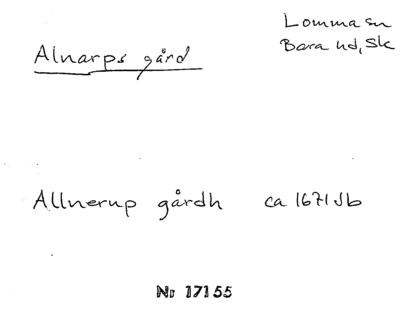 Lomma sn
Alnarps gård
Bara hd, Sk
Allnerup gårdh ca 1671 Jb
Nr 17155